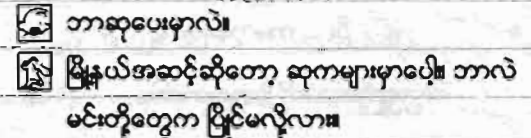 ဘာဆုပေးမှာလဲ။
မြို့နယ်အဆင့်ဆိုတော့ ဆုကများမှာပေါ့။ ဘာလဲ
မင်းတို့တွေက ပြိုင်မလို့လား။